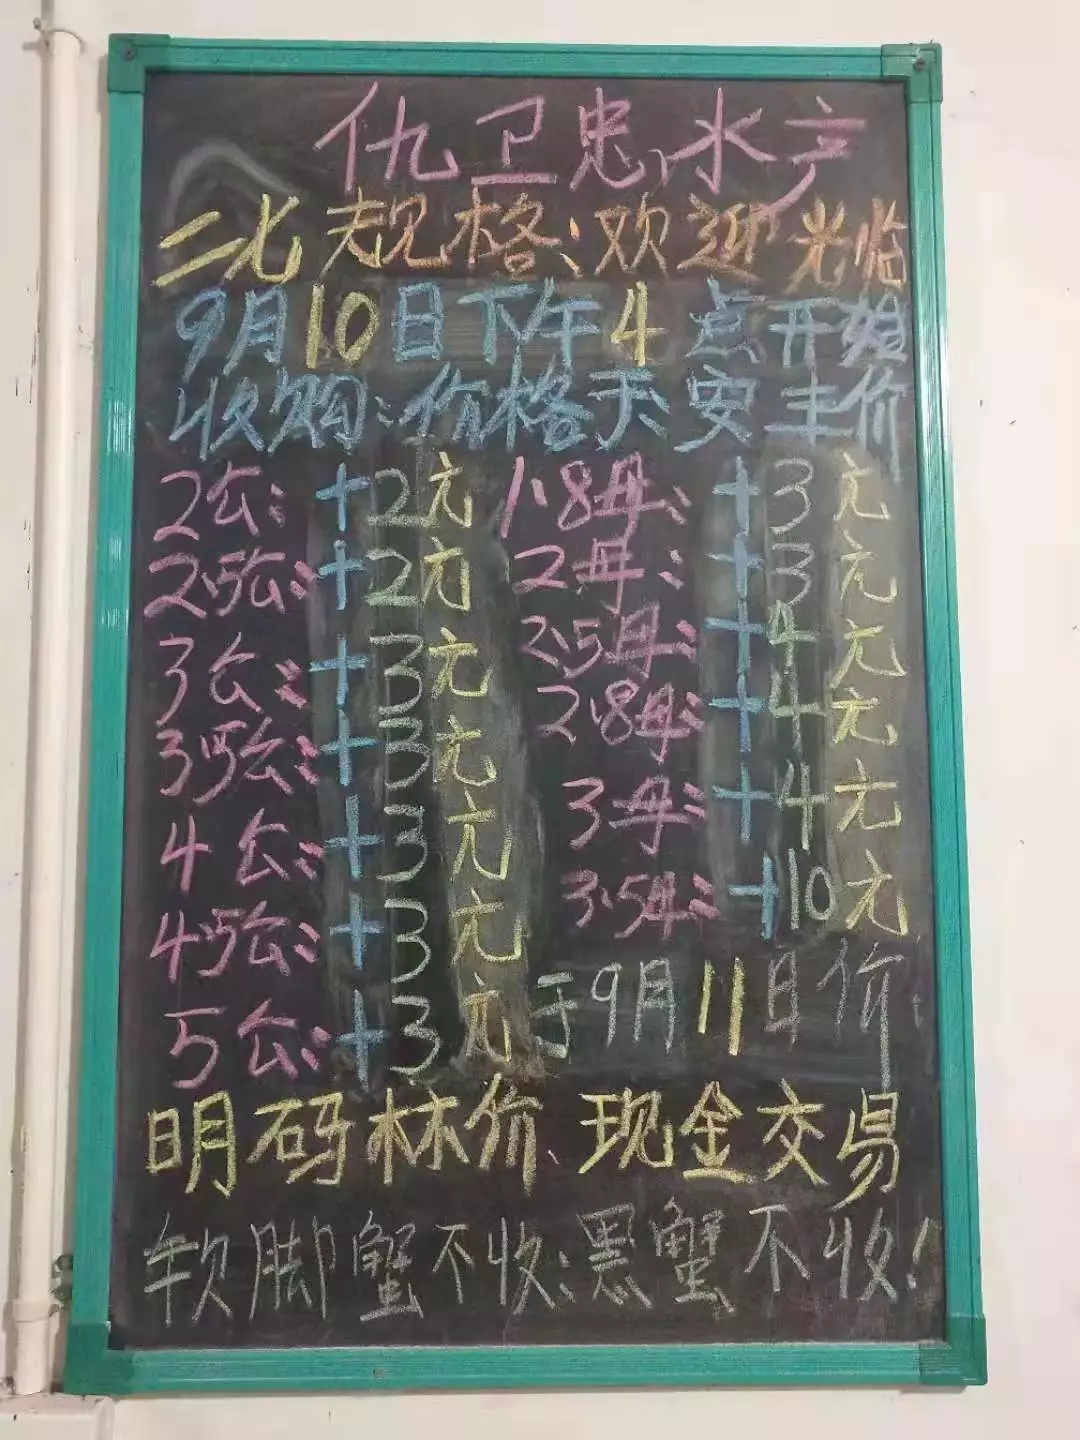 仇卫忠水产
二七规格:欢迎光临
9月10日下午4点开始
收购:价格天安主价
2公:+2元 1.8母:+3元
2.5公:+2元 2母:+3元
3公:+3元 2.5母:+4元
3.5公:+3元 2.8母:+4元
4公:+3元 3母:+4元
4.5公:+3元 3.5母:+10元
5公:+3元 于9月11日价:
明码标价、现金交易
软脚蟹不收:黑蟹不收!